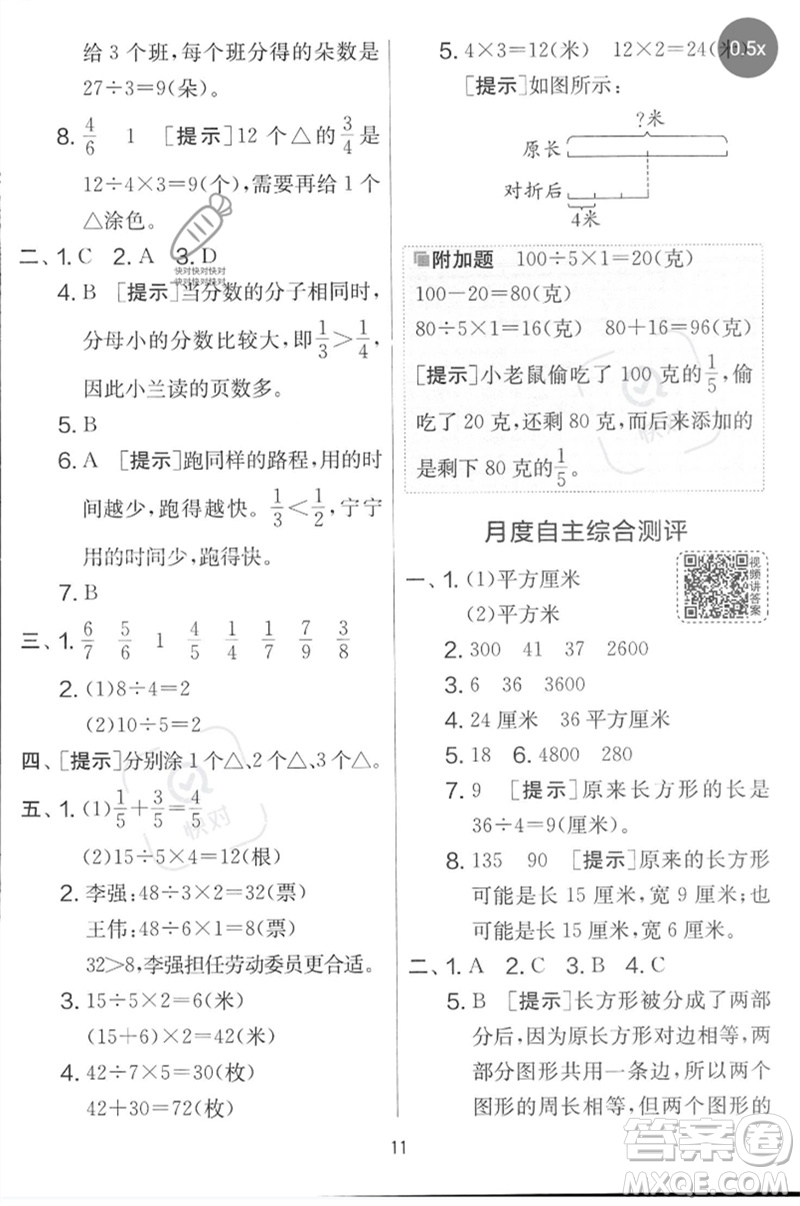 给 3 个班，每个班分得的朵数是
27÷3=9(朵)。
8. 4/6 1 [提示]12 个△的 3/4 是
12÷4×3=9(个)，需要再给 1 个
△涂色。
快对快对快对
快对快对快对
二、1. C 2. A 3. D
4. B [提示]当分数的分子相同时，
分母小的分数比较大，即 1/3＞1/4，
因此小兰读的页数多。
5. B
6. A [提示]跑同样的路程，用的时
间越少，跑得越快。1/3＜1/2，宁宁
用的时间少，跑得快。
7. B
三、1. 6/7 5/6 1 4/5 1/9 7/8 7/9 3/8
2. (1)8÷4=2
(2)10÷5=2
四、[提示]分别涂 1 个△、2 个△、3 个△。
五、1. (1)1/5+3/5=4/5
(2)15÷5×4=12(根)
2. 李强：48÷3×2=32(票)
王伟：48÷6×1=8(票)
32＞8，李强担任劳动委员更合适。
3. 15÷5×2=6(米)
(15+6)×2=42(米)
4. 42÷7×5=30(枚)
42+30=72(枚)
快对
5. 4×3=12(米) 12×2=24(米)
0.5x
[提示]如图所示：
?米
原长
对折后
4米
附加题 100÷5×1=20(克)
100-20=80(克)
80÷5×1=16(克) 80+16=96(克)
[提示]小老鼠偷吃了 100 克的 1/5，偷
吃了 20 克，还剩 80 克，而后来添加的
是剩下 80 克的 1/5。
快对
月度自主综合测评
视频讲答案
一、1. (1)平方厘米
(2)平方米
2. 300 41 37 2600
3. 6 36 3600
4. 24 厘米 36 平方厘米
5. 18 6. 4800 280
7. 9 [提示]原来长方形的长是
36÷4=9(厘米)。
8. 135 90 [提示]原来的长方形
可能是长 15 厘米，宽 9 厘米；也
可能是长 15 厘米，宽 6 厘米。
二、1. A 2. B 3. B 4. C
5. B [提示]长方形被分成了两部
分后，因为原长方形对边相等，两
部分图形共用一条边，所以两个
图形的周长相等，但两个图形的
11
答案卷
MXQE.COM